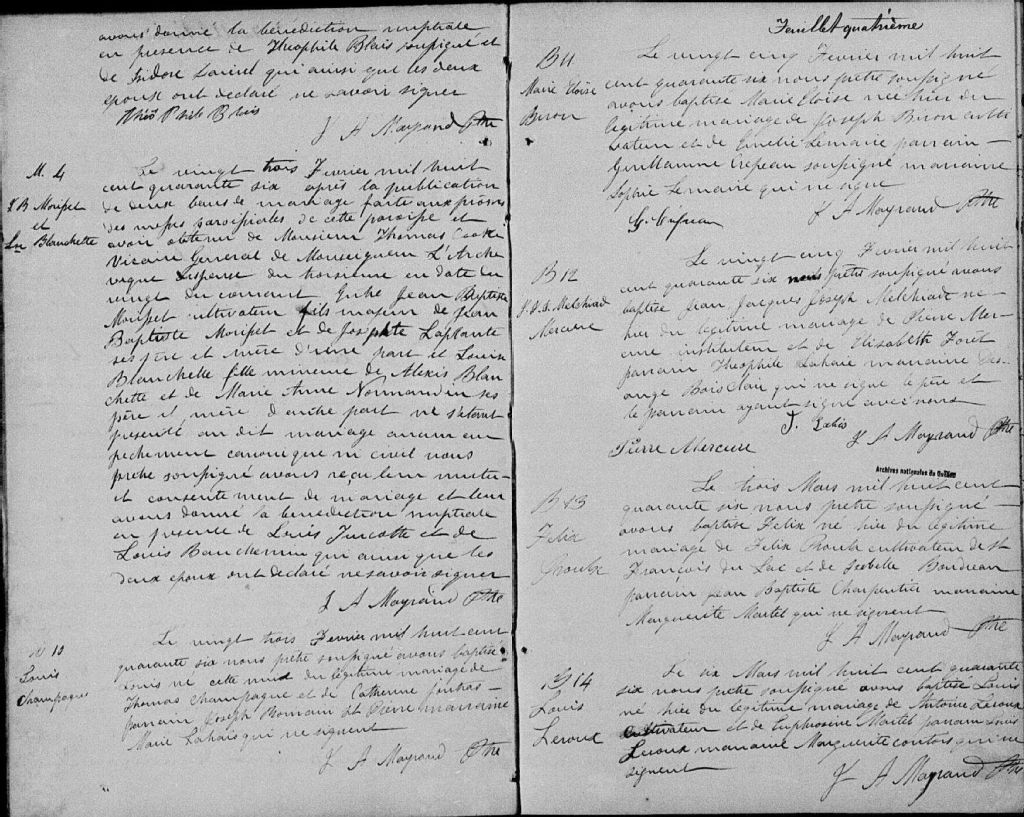 avons donné la bénédiction nuptiale
en presence de Theophile Blais soussigné et
de Isidore qui ainsi que les deux
epoux ont declaré ne savoir signer
Blais
J A Mayrand Ptre
M. 4
J B Moupet
et
Lse Blanchette
Le vingt trois Fevrier mil huit
cent quarante six après la publication
de deux bans de mariage faite aux prônes
des messes paroissiales de cette paroisse et
avoir obtenu de Monsieur Thomas Cooke
Vicaire General de Monseigneur L'Arche
veque dispense du troisieme en date du
vingt du courant Entre Jean Baptiste
Moupet cultivateur fils majeur de Jean
Baptiste Moupet et de Josephte Laplante
ses père et mère d'une part et Louise
Blanchette fille mineure de Alexis Blan
chette et de Marie Anne Normandin ses
père et mère d'autre part ne s'etant
presenté au dit mariage aucun em
pechement canonique ni civil nous
prêtre soussigné avons reçu leur mutu
el consentement de mariage et leur
avons donné la benediction nuptiale
en presence de Louis Turcotte et de
Louis Banchemin qui ainsi que les
deux epoux ont declaré ne savoir signer
J A Mayrand Ptre
B 10
Louis
Champagne
Le vingt trois Fevrier mil huit cent
quarante six nous prêtre soussigné avons baptisé
Louis né cette nuit du légitime mariage de
Thomas Champagne et de Catherine
parrain Joseph Romain St Pierre marraine
Marie Lahaie qui ne signent
J A Mayrand Ptre
Feuillet quatrième
B 11
Marie Eloise
Biron
Le vingt cinq Fevrier mil huit
cent quarante six nous prêtre soussigné
avons baptisé Marie Eloise née hier du
legitime mariage de Joseph Biron culti
vateur et de Emelie Lemaire parrain
Guillaume Crepeau soussigné marraine
Sophie Lemaire qui ne signe
G. Crepeau
J A Mayrand Ptre
B 12
J. J. J. Melchiad
Mercure
Le vingt cinq Fevrier mil huit
cent quarante six nous Prêtre soussigné avons
baptisé Jean Jacques Joseph Melchiade né
hier du legitime mariage de Pierre Mer-
cure instituteur et de Elisabeth Foret
parrain Theophile Lahaie marraine Des-
ange Bois Clair qui ne signe le père et
le parrain ayant signé avec nous
J A Mayrand Ptre
Pierre Mercure
Archives nationales du Québec
B 13
Felix
Proulx
Le trois Mars mil huit cent
quarante six nous prêtre soussigné
avons baptisé Felix né hier du légitime
mariage de Felix Proulx cultivateur de St
François du Lac et de Isabelle Boudreau
parrain Jean Baptiste Charpentier marraine
Marguerite Martel qui ne signent
J A Mayrand Ptre
B 14
Louis
Leroux
Le six Mars mil huit cent quarante
six nous prêtre soussigné avons baptisé Louis
né hier du légitime mariage de Antoine Leroux
cultivateur et de Euphrosine Martel parrain Louis
Leroux marraine Marguerite contois qui ne
signent
J A Mayrand Ptre